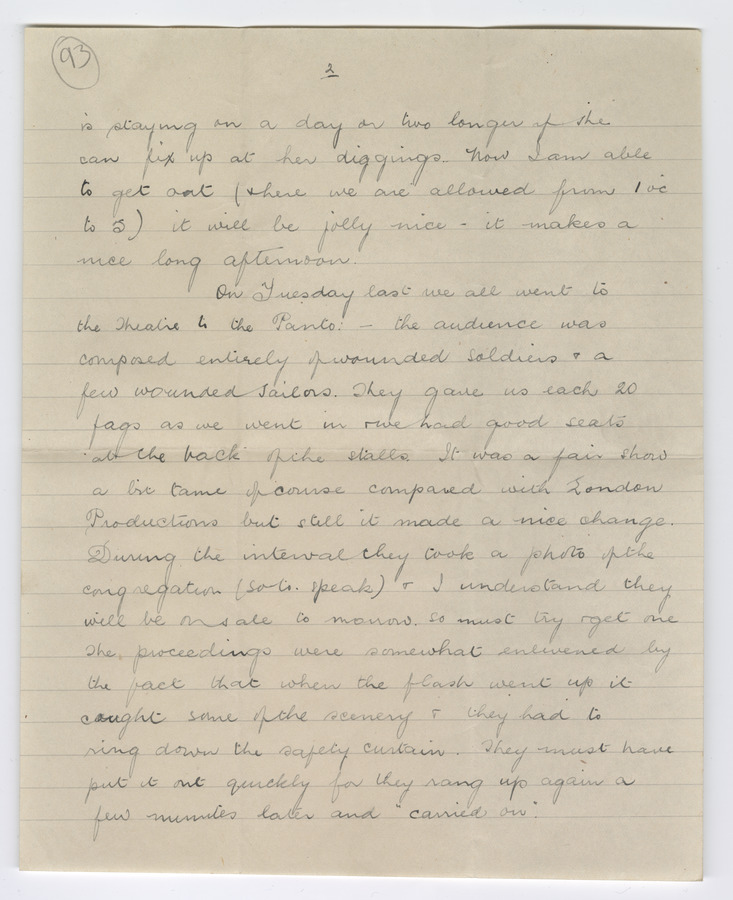 93
2
is staying on a day or two longer if she
can fix up at her diggings. Now I am able
to get out (& here we are allowed from 1 oc
to 5) it will be jolly nice - it makes a
nice long afternoon.
On Tuesday last we all went to
the Theatre to the Panto: - the audience was
composed entirely of wounded soldiers & a
few wounded Sailors. They gave us each 20
fags as we went in & we had good seats
at the back of the stalls. It was a fair show
a bit tame of course compared with London
Productions but still it made a nice change.
During the interval they took a photo of the
congregation (so to. speak) & I understand they
will be on sale to morrow. so must try & get one
The proceedings were somewhat enlivened by
the fact that when the flash went up it
caught some of the scenery & they had to
ring down the safety curtain. They must have
put it out quickly for they rang up again a
few minutes later and "carried on".